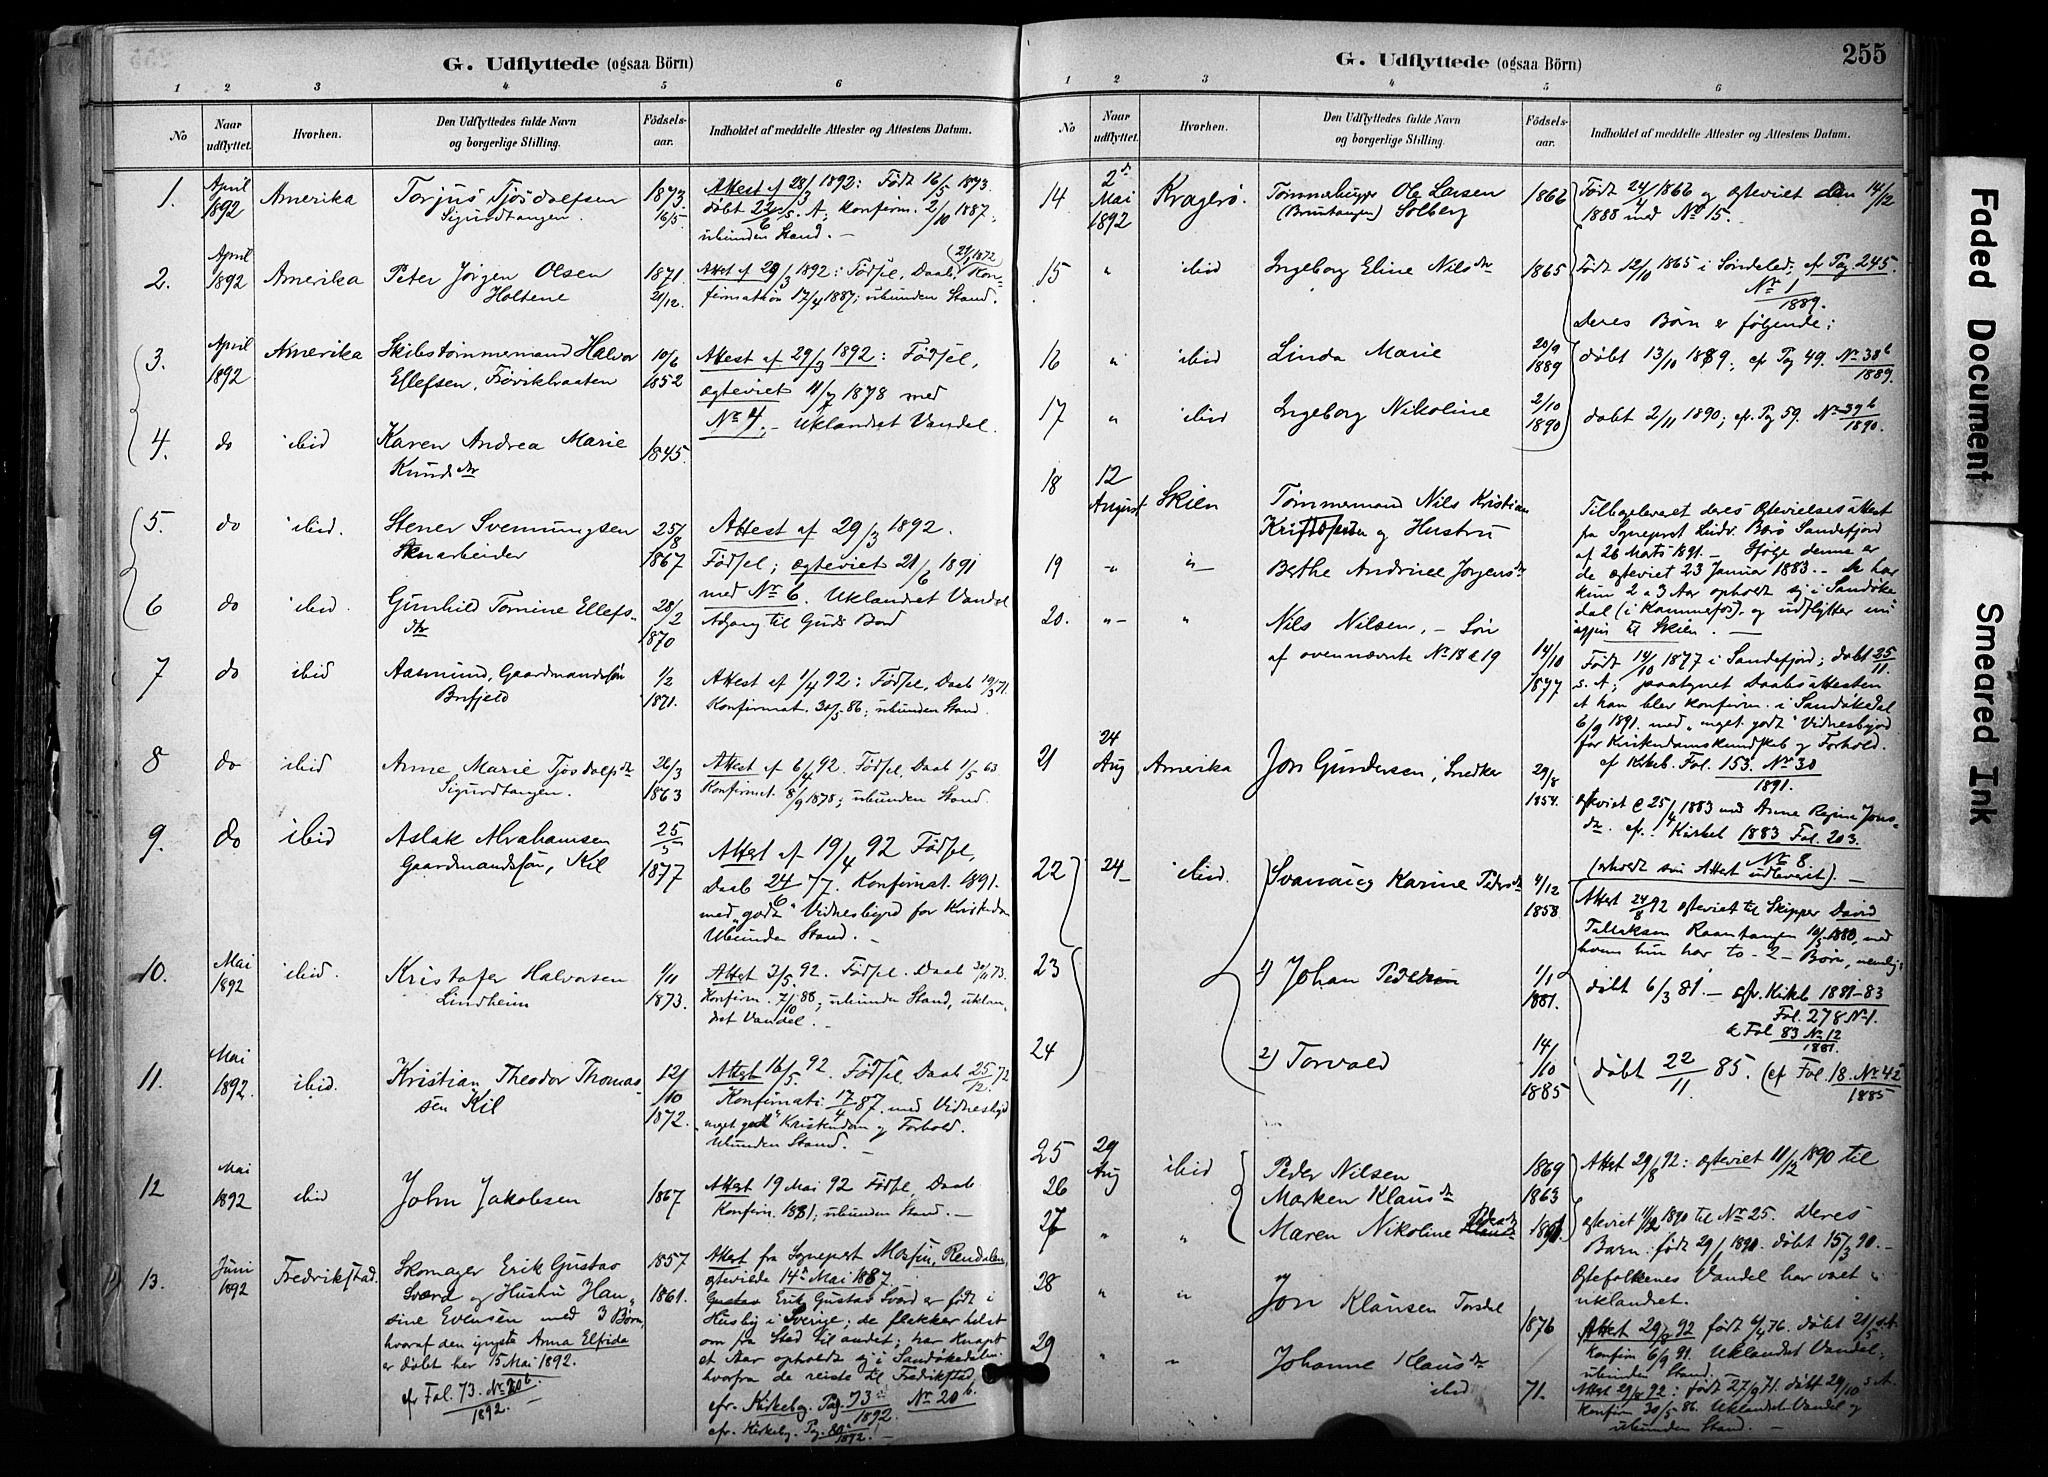 G. Udflyttede (ogsaa Börn)
1 2 3 4 5 6
No
Naar udflyttet.
Hvorhen.
Den Udflyttedes fulde Navn og borgerlige Stilling.
Fødsels- aar.
Indholdet af meddelte Attester og Attestens Datum.
1. April 1892 Amerika Torjus Tjösdolfsen Sigurdtangen. 1873. 16/5.
Attest af 28/3 1892: Født 16/5 1873.
døbt 22/6 s. A; konfirm. 2/10 1887.
ubunden Stand. —
2. April 1892 Amerika Peter Jörgen Olsen Holtene 1871. 21/12.
Attest af 29/3 1892: Fødsel, Daab (21/1 1872) Kon-
firmation 17/4 1887; ubunden Stand.
3. April 1892 Amerika Skibstømmermand Halvor Ellefsen, 10/6 1852
Attest af 29/3 1892: Fødsel,
ægteviet 11/7 1878 med
No 4. — Uklandret Vandel.
4. do ibid Karen Andrea Marie Knudsdtr 1845.
5. do ibid. Stener Svennungsen 25/8 1867
Attest af 29/3 1892.
Fødsel; ægteviet 21/6 1891
med No 6. Uklandret Vandel
Adgang til Guds Bord
6 do ibid. Gunhild Tomine Ellefs- dtr 28/2 1870
7 do ibid Aasmund, Gaardmandssøn Brifjeld 1/2 1871.
Attest af 1/4 92: Fødsel, Daab 19/3 71.
Konfirmat. 30/5 86; ubunden Stand.
8 do ibid Anne Marie Tjosdolfsdtr Sigurdtangen. 26/3 1863
Attest af 6/4 92. Fødsel, Daab 1/5 63
Konfirmat. 8/9 1878; ubunden Stand.
9. do ibid Aslak Abrahamsen Gaardmandssøn, Kil 25/5 1877
Attest af 19/4 92 Fødsel,
Daab 24/6 77. Konfirmat. 1891.
med "godt" Vidnesbyrd for Kristendom
Ubunden Stand. —
10. Mai 1892 ibid. Kristofer Halvorsen Lindheim 1/11 1873.
Attest 3/5 92. Fødsel. Daab 30/11 73.
Konfirm. 7/10 88; ubunden Stand, uklan-
dret Vandel. —
11. Mai 1892. ibid. Kristian Theodor Thomas- sen Kil 12/10 1872.
Attest 16/5 92. Fødsel. Daab 25/12 72
Konfirmat: 17/4 87. med Vidnesbyd
"meget godt" Kristendom og Forhold.
Ubunden Stand. —
12 Mai 1892 ibid John Jakobsen 1867
Attest 19 Mai 92 Fødsel, Daab
Konfirm. 1881; ubunden Stand. —
13. Juni 1892 Fredrikstad. Skomager Erik Gustav 1857
Sværd og Hustru Han- 1861.
sine Evensen med 3 Børn,
hvoraf den yngste Anna Elfida
er døbt her 15 Mai 1892.
cfr Fol. 73. No 20b/1892.
Attest fra Sogneprest Mossin, Rendalen,
ægteviede 14de Mai 1887.
Gustav Erik Gustav Sværd er født i
Husby i Sverige; de flekker helst
om fra Sted til andet; har knapt
et Aar opholdt sig i Sandøkedalen
hvorfra de reiste til Fredrikstad,
cfr. Kirkebog. Pag. 73/1892 No 20b
cfr. Kirkebog. Pag.
G. Udflyttede (ogsaa Börn)
255
1 2 3 4 5 6
No
Naar udflyttet.
Hvorhen.
Den Udflyttedes fulde Navn og borgerlige Stilling.
Fødsels- aar.
Indholdet af meddelte Attester og Attestens Datum.
14 2den Mai 1892 Kragerø. Tømmerhugger Ole Larsen Solberg 1866
Født 24/4 1866 og ægteviet den 14/12
1888 med No 15. —
15 " ibid Ingeborg Eline Nilsdtr 1865
Født 12/10 1865 i Søndeled, cf Pag 245.
No 1/1889.
Deres Børn er følgende:
16 " ibid Linda Marie 20/9 1889
døbt 13/10 1889; cfr Pag 49. No 38b/1889.
17 " ibid Ingeborg Nikoline 2/10 1890
døbt 2/11 1890; cfr. Pag 59. No 39b/1890.
18 12 August Skien Tømmermand Nils Kristian
Kristofersen og Hustru
Tilbageleveret deres Ægtevielsesattest
fra Sogneprst Ludv. Borö Sandefjord
af 26 Marts 1891. — Ifølge denne er
de ægteviet 23 Januar 1883. — De har
kun 2 a 3 Aar opholdt sig i Sandöke-
dal (i Kammerfos). og udflytter nu
igjen til Skien. —
19 " " Berthe Andrine Jörgensdtr
20. " " Nils Nilsen, — Søn
af ovennævnte No 18 & 19 14/10 1877
Født 14/10 1877 i Sandefjord; døbt 25/11.
s. A; paategnet Daabsattesten
at han blev konfirm. i Sandökedal
6/9 1891. med "meget godt" Vidnesbyrd
for Kristendomskundskab og Forhold.
cf Kirkeb. Fol. 153. No 30/1891.
21 24 Aug Amerika Jon Gundersen, Snedker 29/8 1854.
Ægteviet 25/4 1883 med Anne Regine Jons-
dtr. cfr. Kirkeb 1883 Fol. 203.
No 8.
(erholdt sin Attest udleveret). —
22 24 ibid. Svanaug Karine Pedersdtr 4/12 1858.
Attest 24/8 92 ægteviet til Skipper David
Tallaksen Raantangen 10/5 1880, med
hvem hun har to - 2 - Børn, nemlig:
23 1) Johan Pedersen 1/1 1881.
døbt 6/3 81. — cfr. Kirkeb 1881-83
Fol. 278 No 1.
& Fol 83 No 12/1881.
24 2) Torvald 14/10 1885
døbt 22/11 85. (cf Fol. 18. No 42/1885
25 29 Aug ibid Peder Nilsen 1869
Attest 29/8 92: ægteviet 11/12 1890 til
26 Marken Klausdtr 1863
ægteviet 11/12 1890 til No 25. Deres
27 " " Maren Nikoline Pedersdtr 1890.
Barn: født 29/1 1890. døbt 15/3 90. —
Ægtefolkenes Vandel har været
uklandret.
28 " " Jon Klausen Torsdal 1876
Attest 29/8 92 født 6/4 76. døbt 21/5 s.A.
Konfirm 6/9 91. Uklandret Vandel,
ubunden Stand.
29 " " Johanne Klausdtr ibid 71.
Attest 29/8 92: født 27/9 71. døbt 29/10 s.A.
Konfirm 30/5 86. Uklandret Vandel og
ubunden Stand. —
Faded Document
Smeared Ink